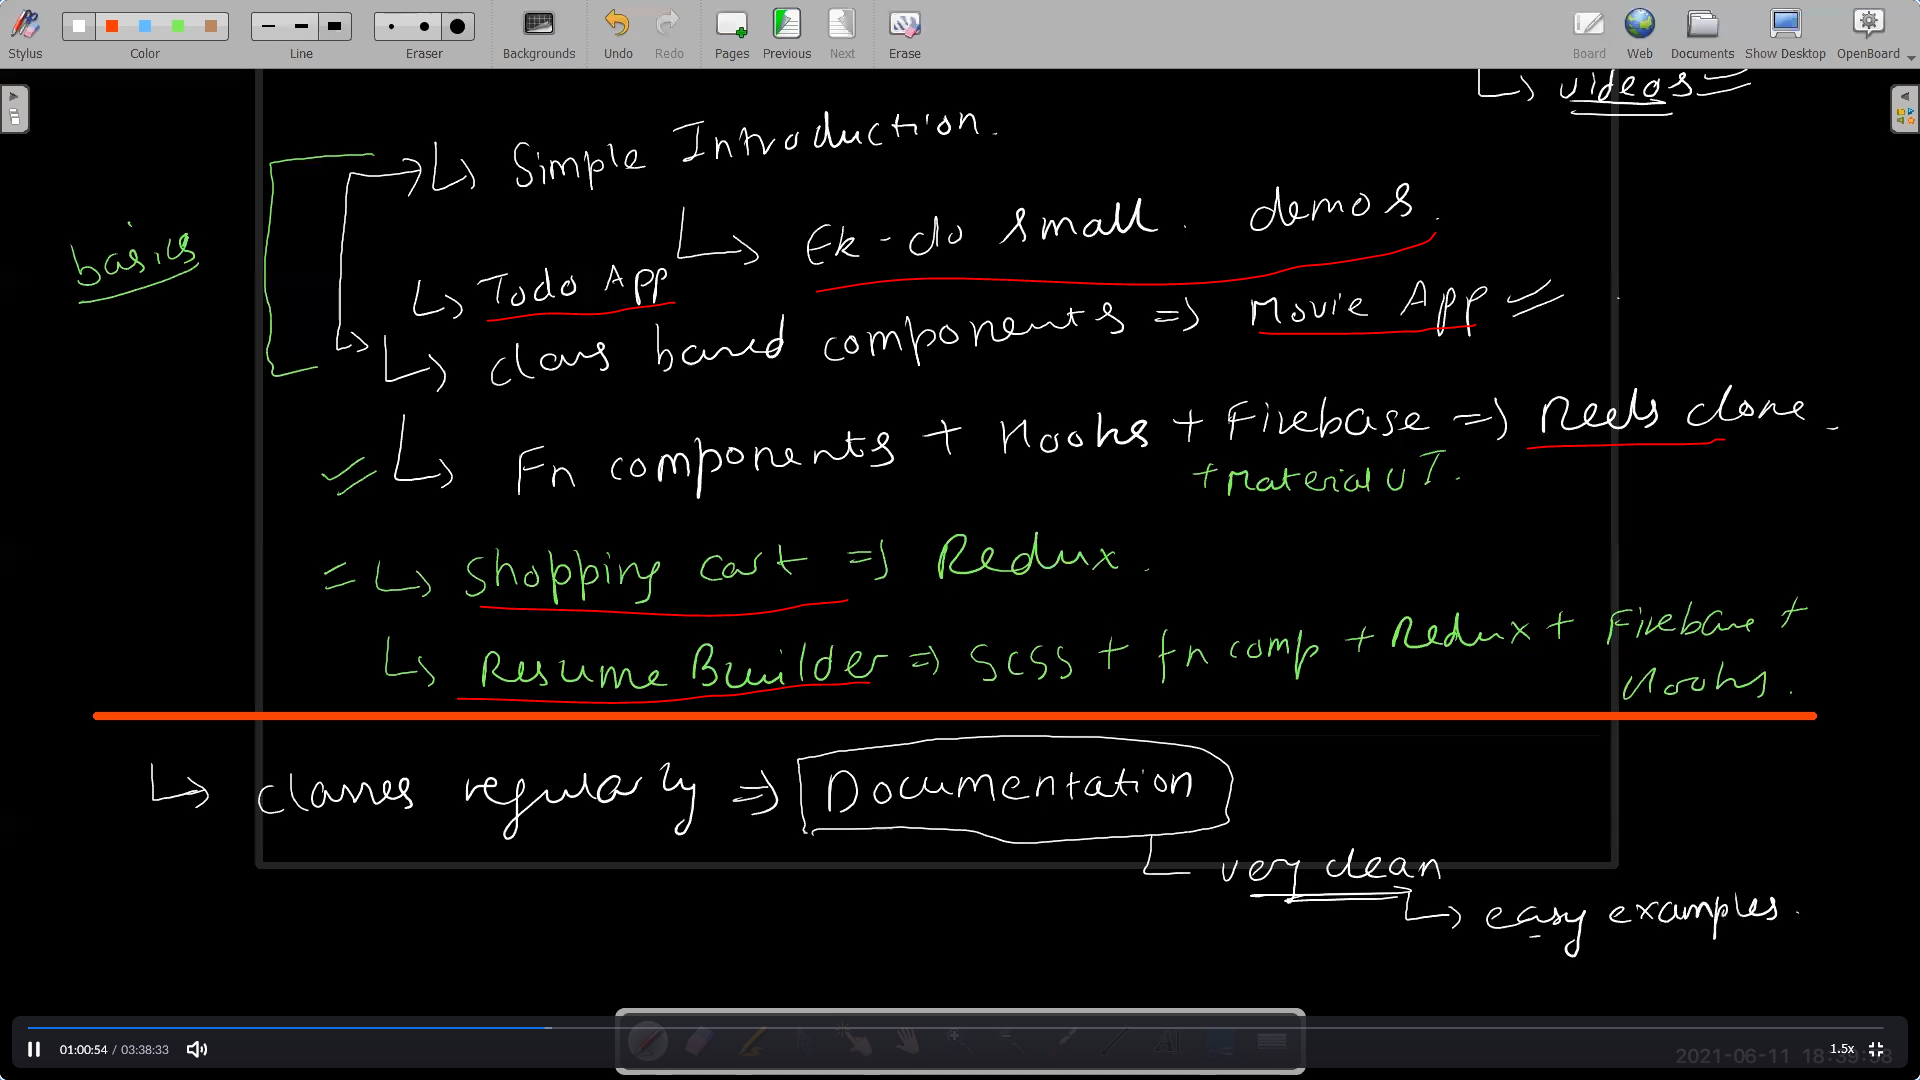 Stylus Color Line Eraser Backgrounds Undo Redo Pages Previous Next Erase Board Web Documents Show Desktop OpenBoard
↳ videos
↳ Simple Introduction.
↳ Ek-do small demos.
basics
↳ Todo App
↳ class based components => Movie App
↳ Fn components + Hooks + Firebase => Reels clone
+ Material UI.
↳ Shopping cart => Redux.
↳ Resume Builder => SCSS + fn comp + Redux + Firebase +
Hooks.
↳ classes regularly => Documentation
very clean
↳ easy examples.
01:00:54 / 03:38:33
1.5x